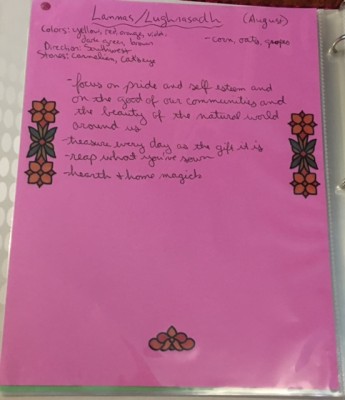 Lammas/Lughnasadh (August)
Colors: yellow, red, orange, violet,
dark green, brown
- corn, oats, grapes
Direction: Southwest
Stones: Carnelian, Catseye
- focus on pride and self esteem and
on the good of our communities and
the beauty of the natural world
around us
- treasure every day as the gift it is
- reap what you've sown
- hearth + home magick